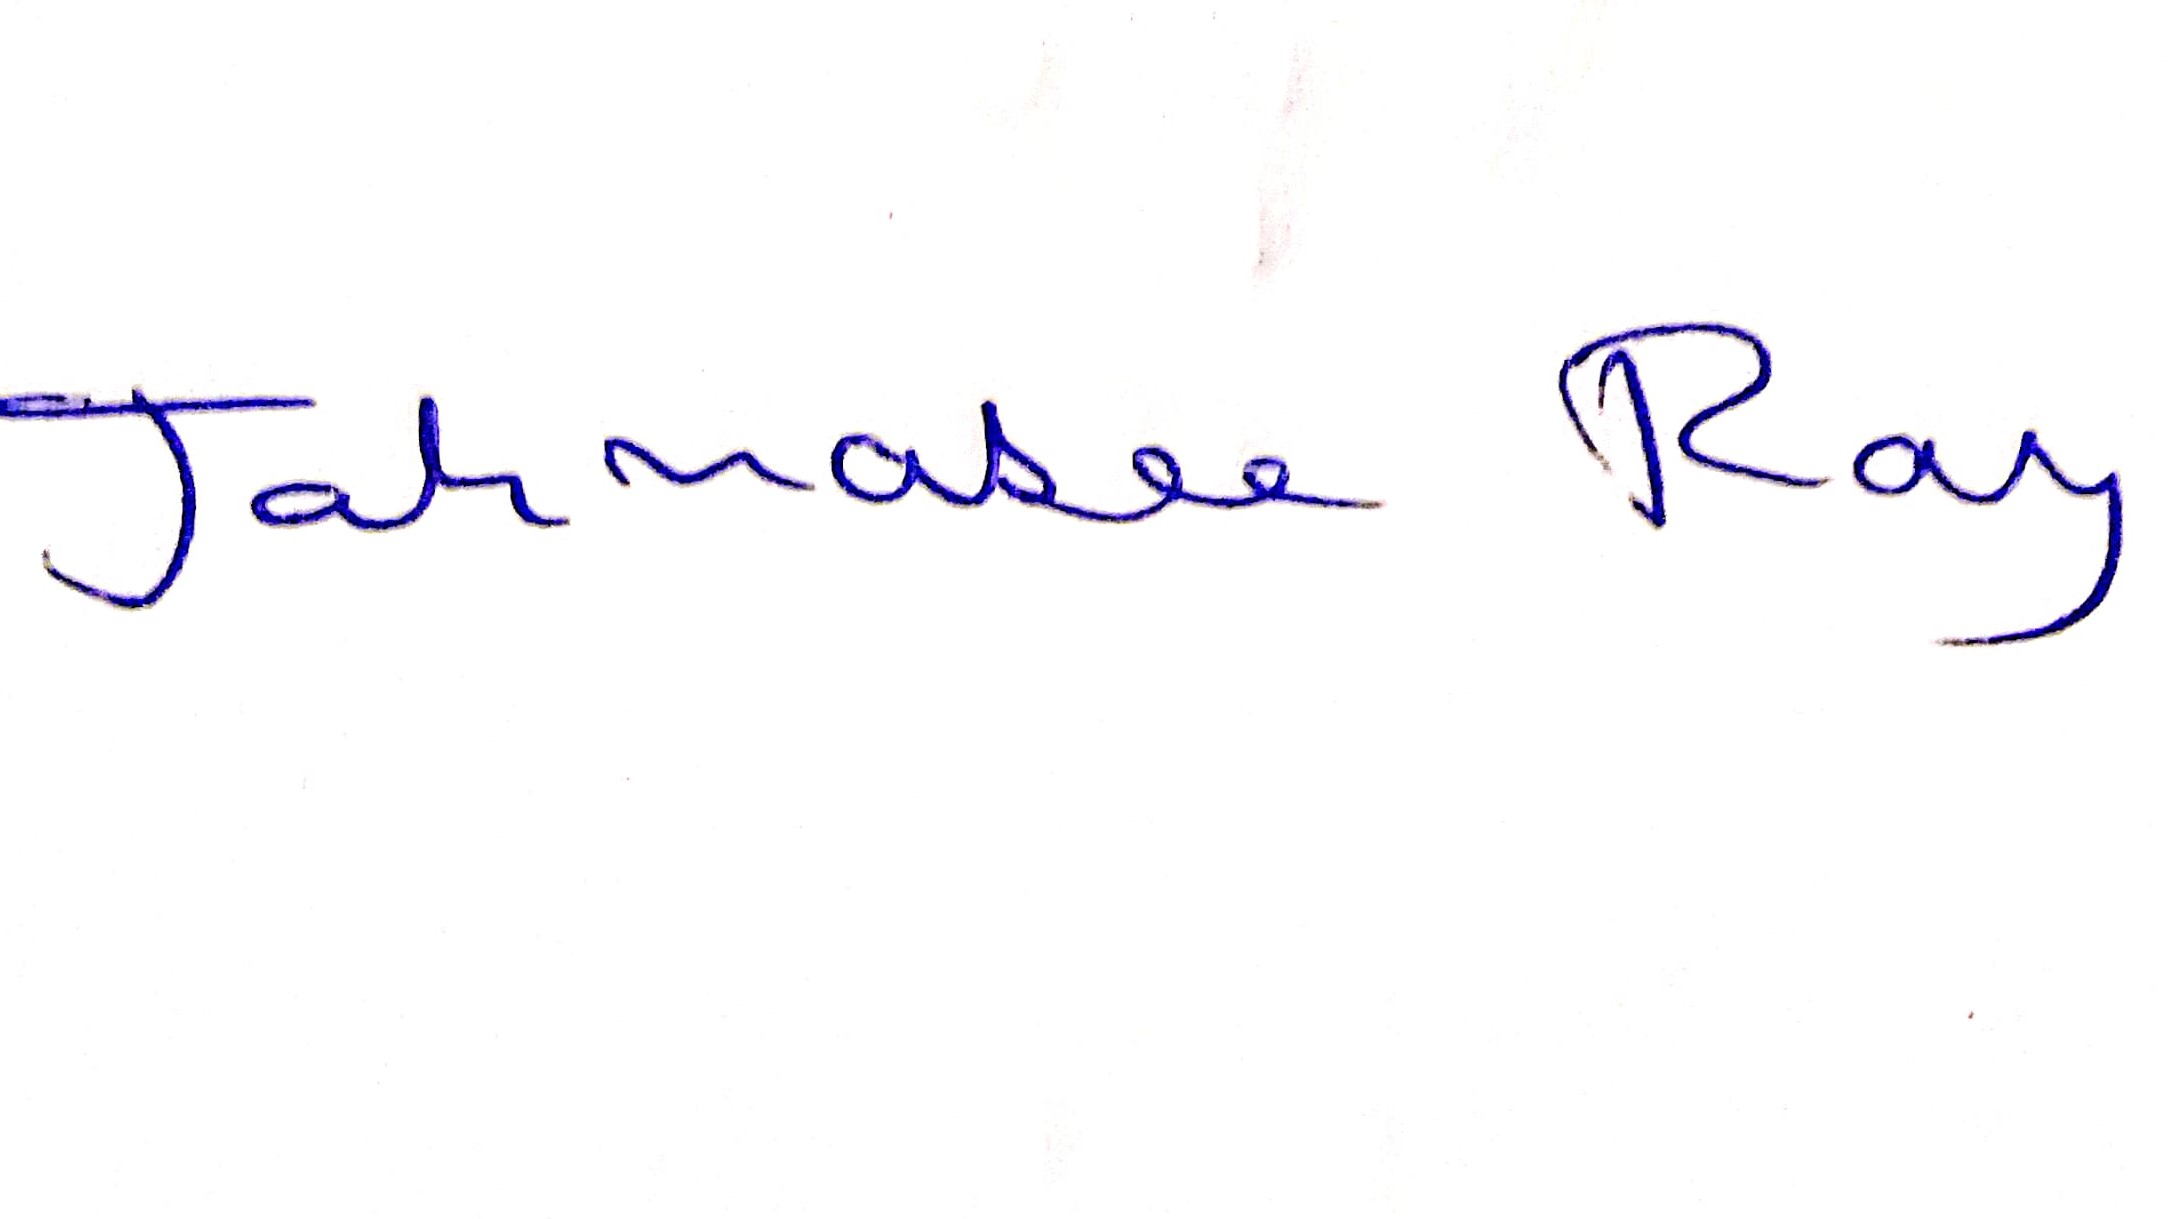 Jahnasee Ray